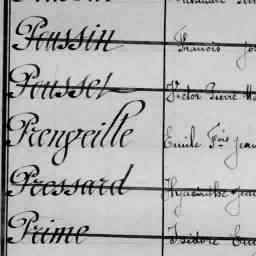 Poussin Francois
Pousset Victor Pierre
Prengeille Emile F.ois Jean
Pressard Hyacinthe
Prime Isidore